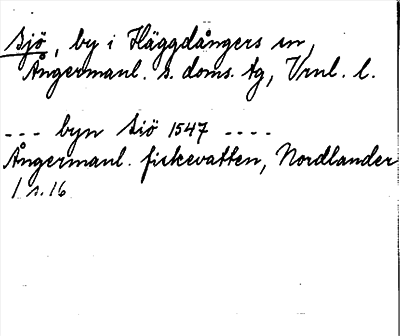 Sjö, by i Häggdångers sn,
Ångermanl. s. doms. tg, Vrnl. l.
--- byn Siö 1547 ----
Ångermanl. fiskevatten, Nordlander
1 s. 16